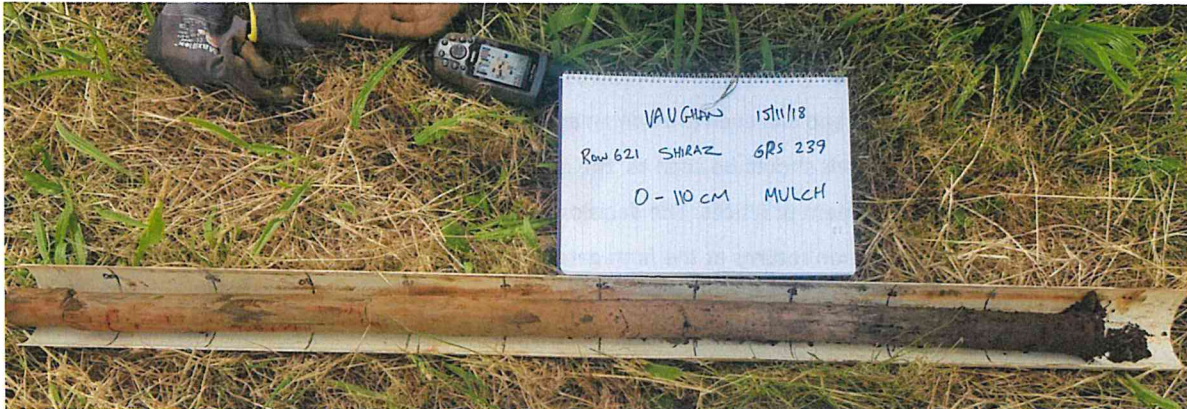 VAUGHAN 15/11/18
Row 621 SHIRAZ GPS 239
0 - 110 CM MULCH